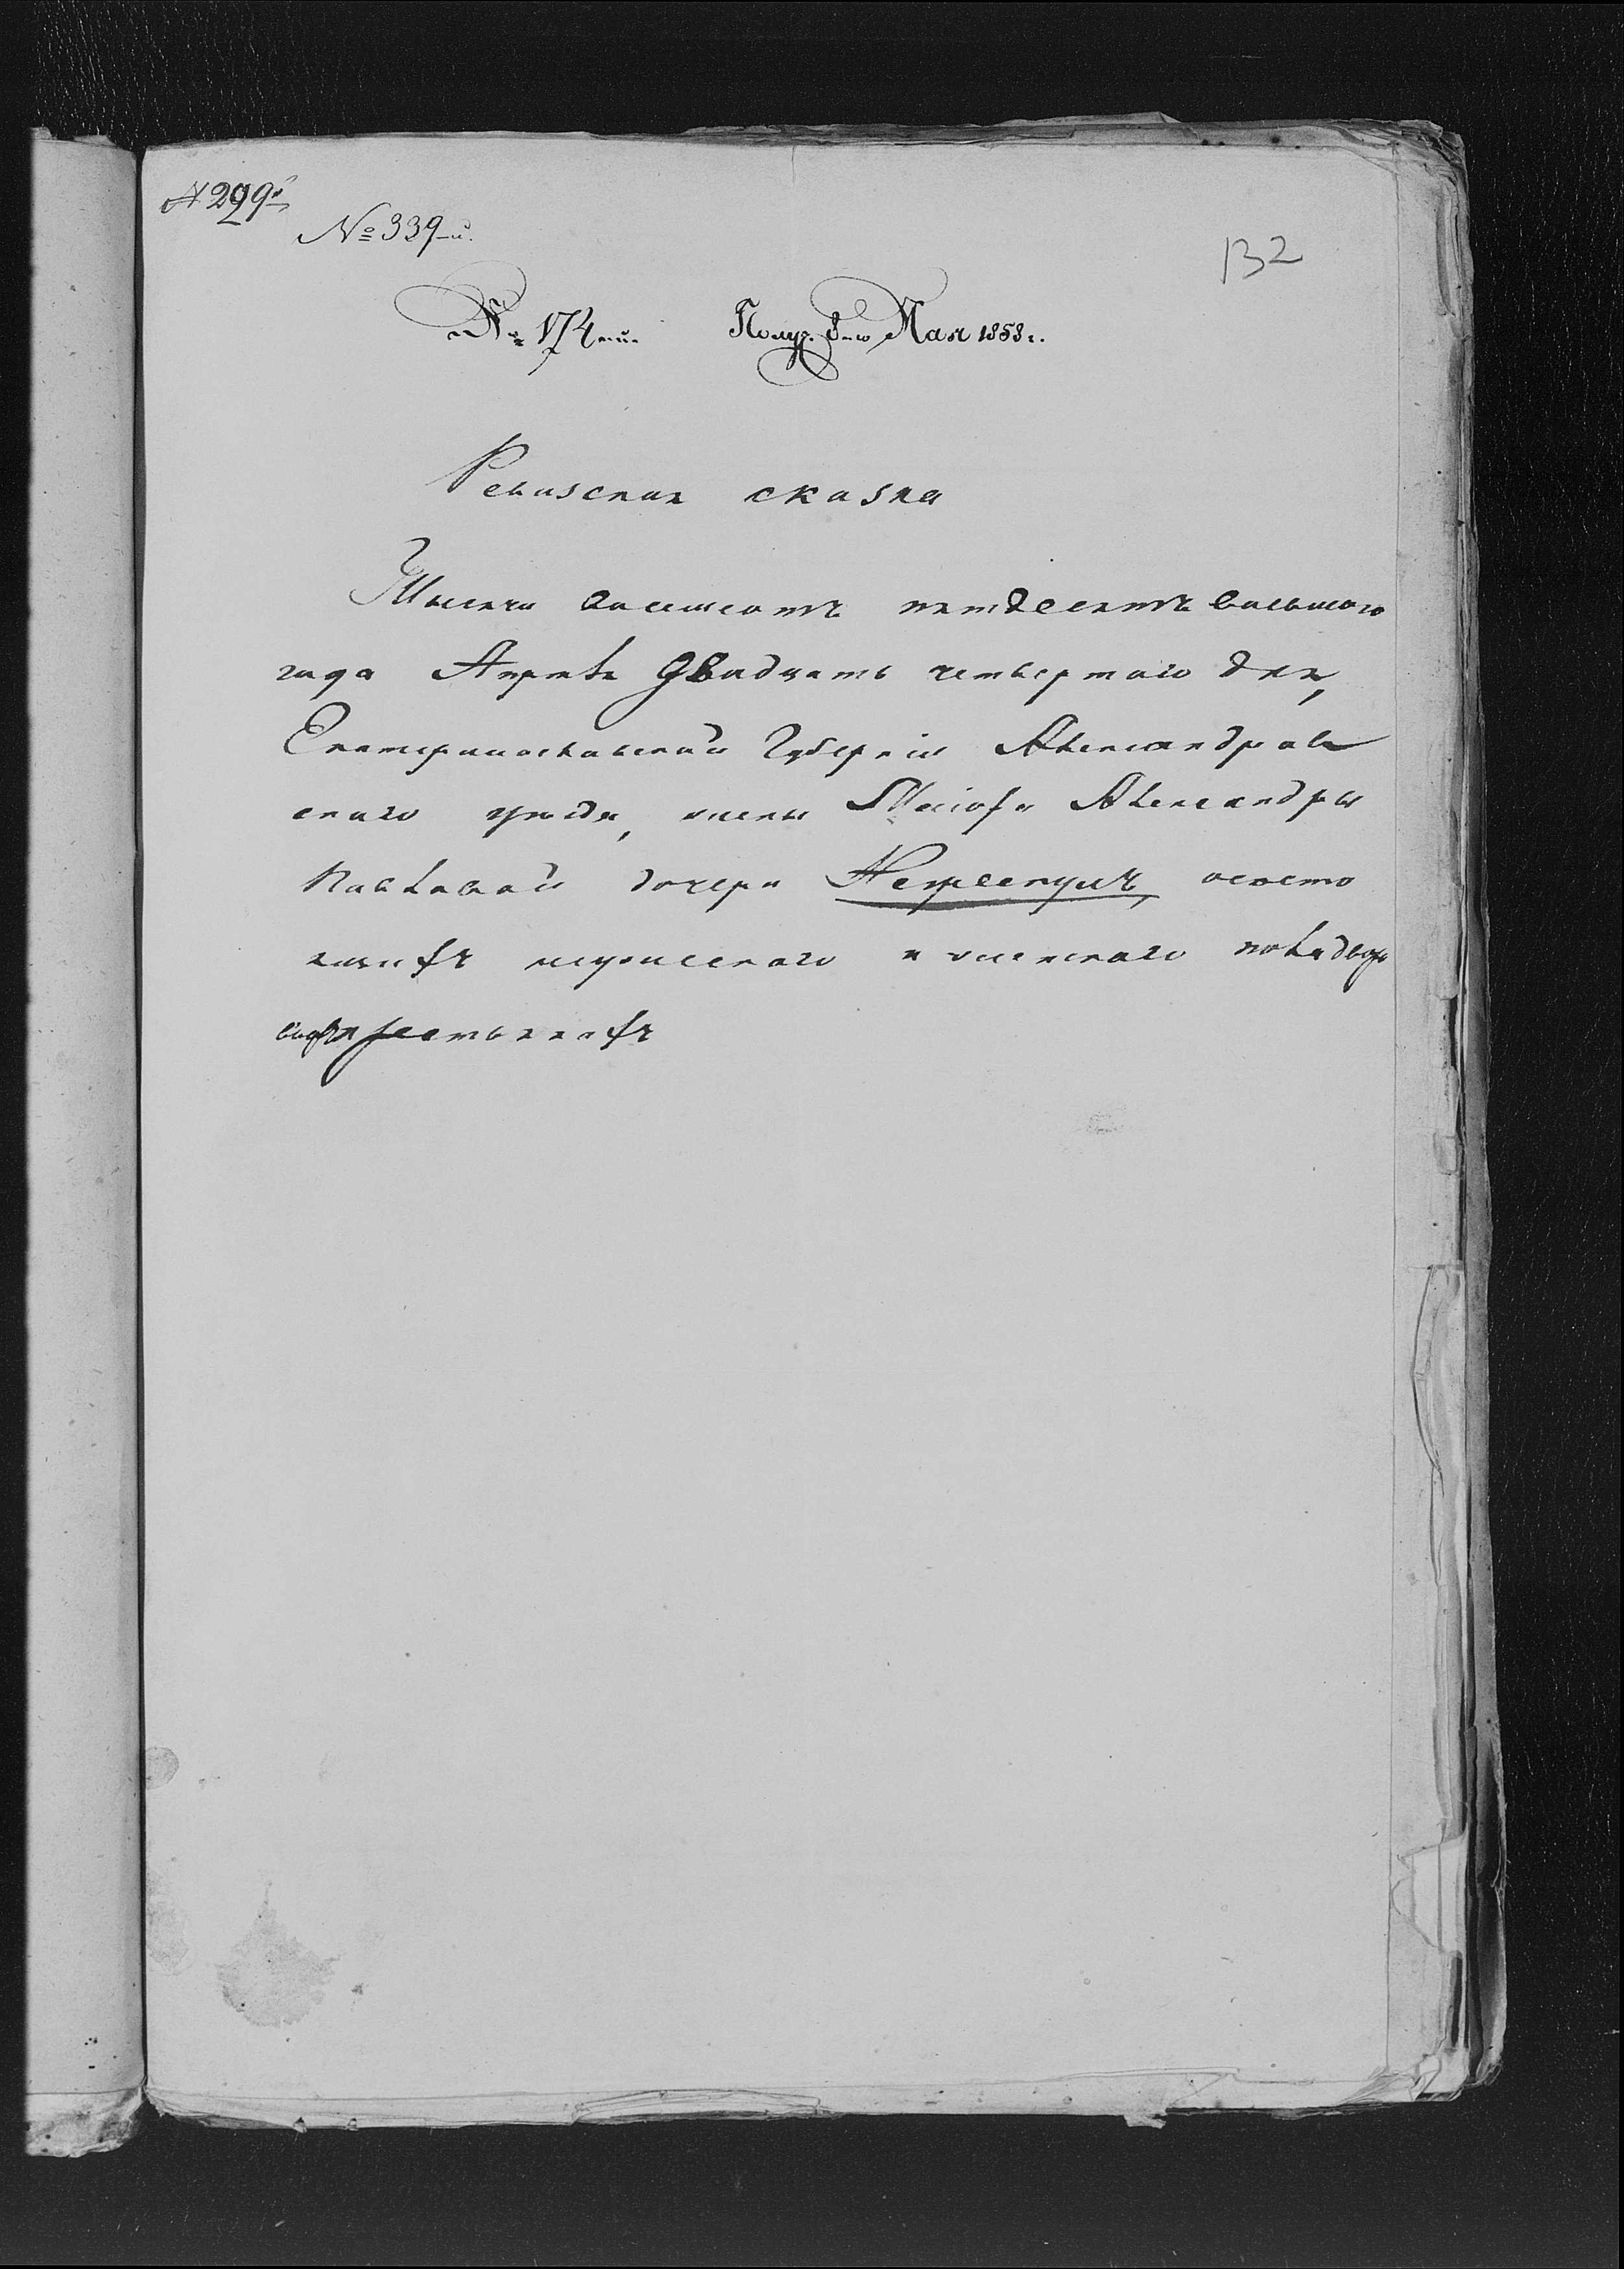 № 299й
№ 339-й.
132
№ 174-й. Получ. 8-го Мая 1858 г.
Ревизская сказка
Тысяча восемсотъ пятдесятъ восьмого
года Апреля двадцать четвертаго дня,
Екатеринославской Губерніи Александров
скаго уезда, жены Маіора Александры
Павловой дочери о состо
ящихъ мужескаго и женскаго пола дворо
выхъ крестьянахъ